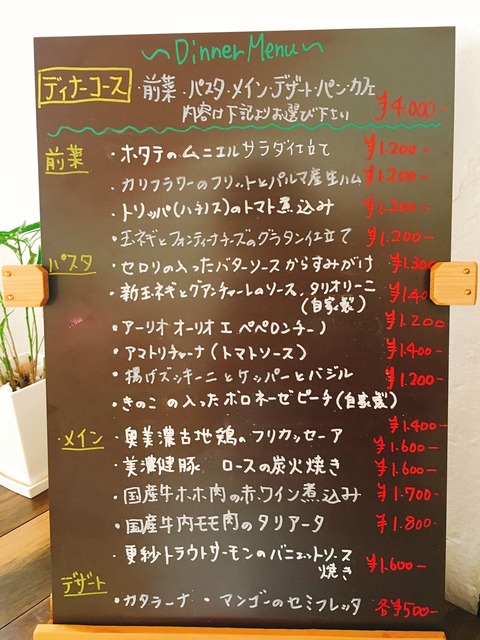 ~Dinner Menu~
ディナーコース ・前菜・パスタ・メイン・デザート・パン・カフェ
内容は下記よりお選び下さい ¥4.000-
前菜 ・ホタテのムニエルサラダ仕立て ¥1.200-
・カリフラワーのフリットとパルマ産生ハム ¥1.200-
・トリッパ(ハチノス)のトマト煮込み ¥1.200-
・玉ネギとフォンティーナチーズのグラタン仕立て ¥1.200-
パスタ ・セロリの入ったバターソースからすみがけ ¥1.300
・新玉ネギとグアンチャーレのソース、タリオリーニ ¥1.40
(自家製)
・アーリオオーリオエペペロンチーノ ¥1.200
・アマトリチャーナ(トマトソース) ¥1.400-
・揚げズッキーニとケッパーとバジル ¥1.200-
・きのこの入ったボロネーゼピーチ(自家製) ¥1.400-
メイン ・奥美濃古地鶏のフリカッセーア ¥1.600-
・美濃健豚 ロースの炭火焼き ¥1.600-
・国産牛ホホ肉の赤ワイン煮込み ¥1.700-
・国産牛内モモ肉のタリアータ ¥1.800-
・更紗トラウトサーモンのバニェットソース
焼き ¥1.600-
デザート
・カタラーナ ・マンゴーのセミフレッタ 各¥500-